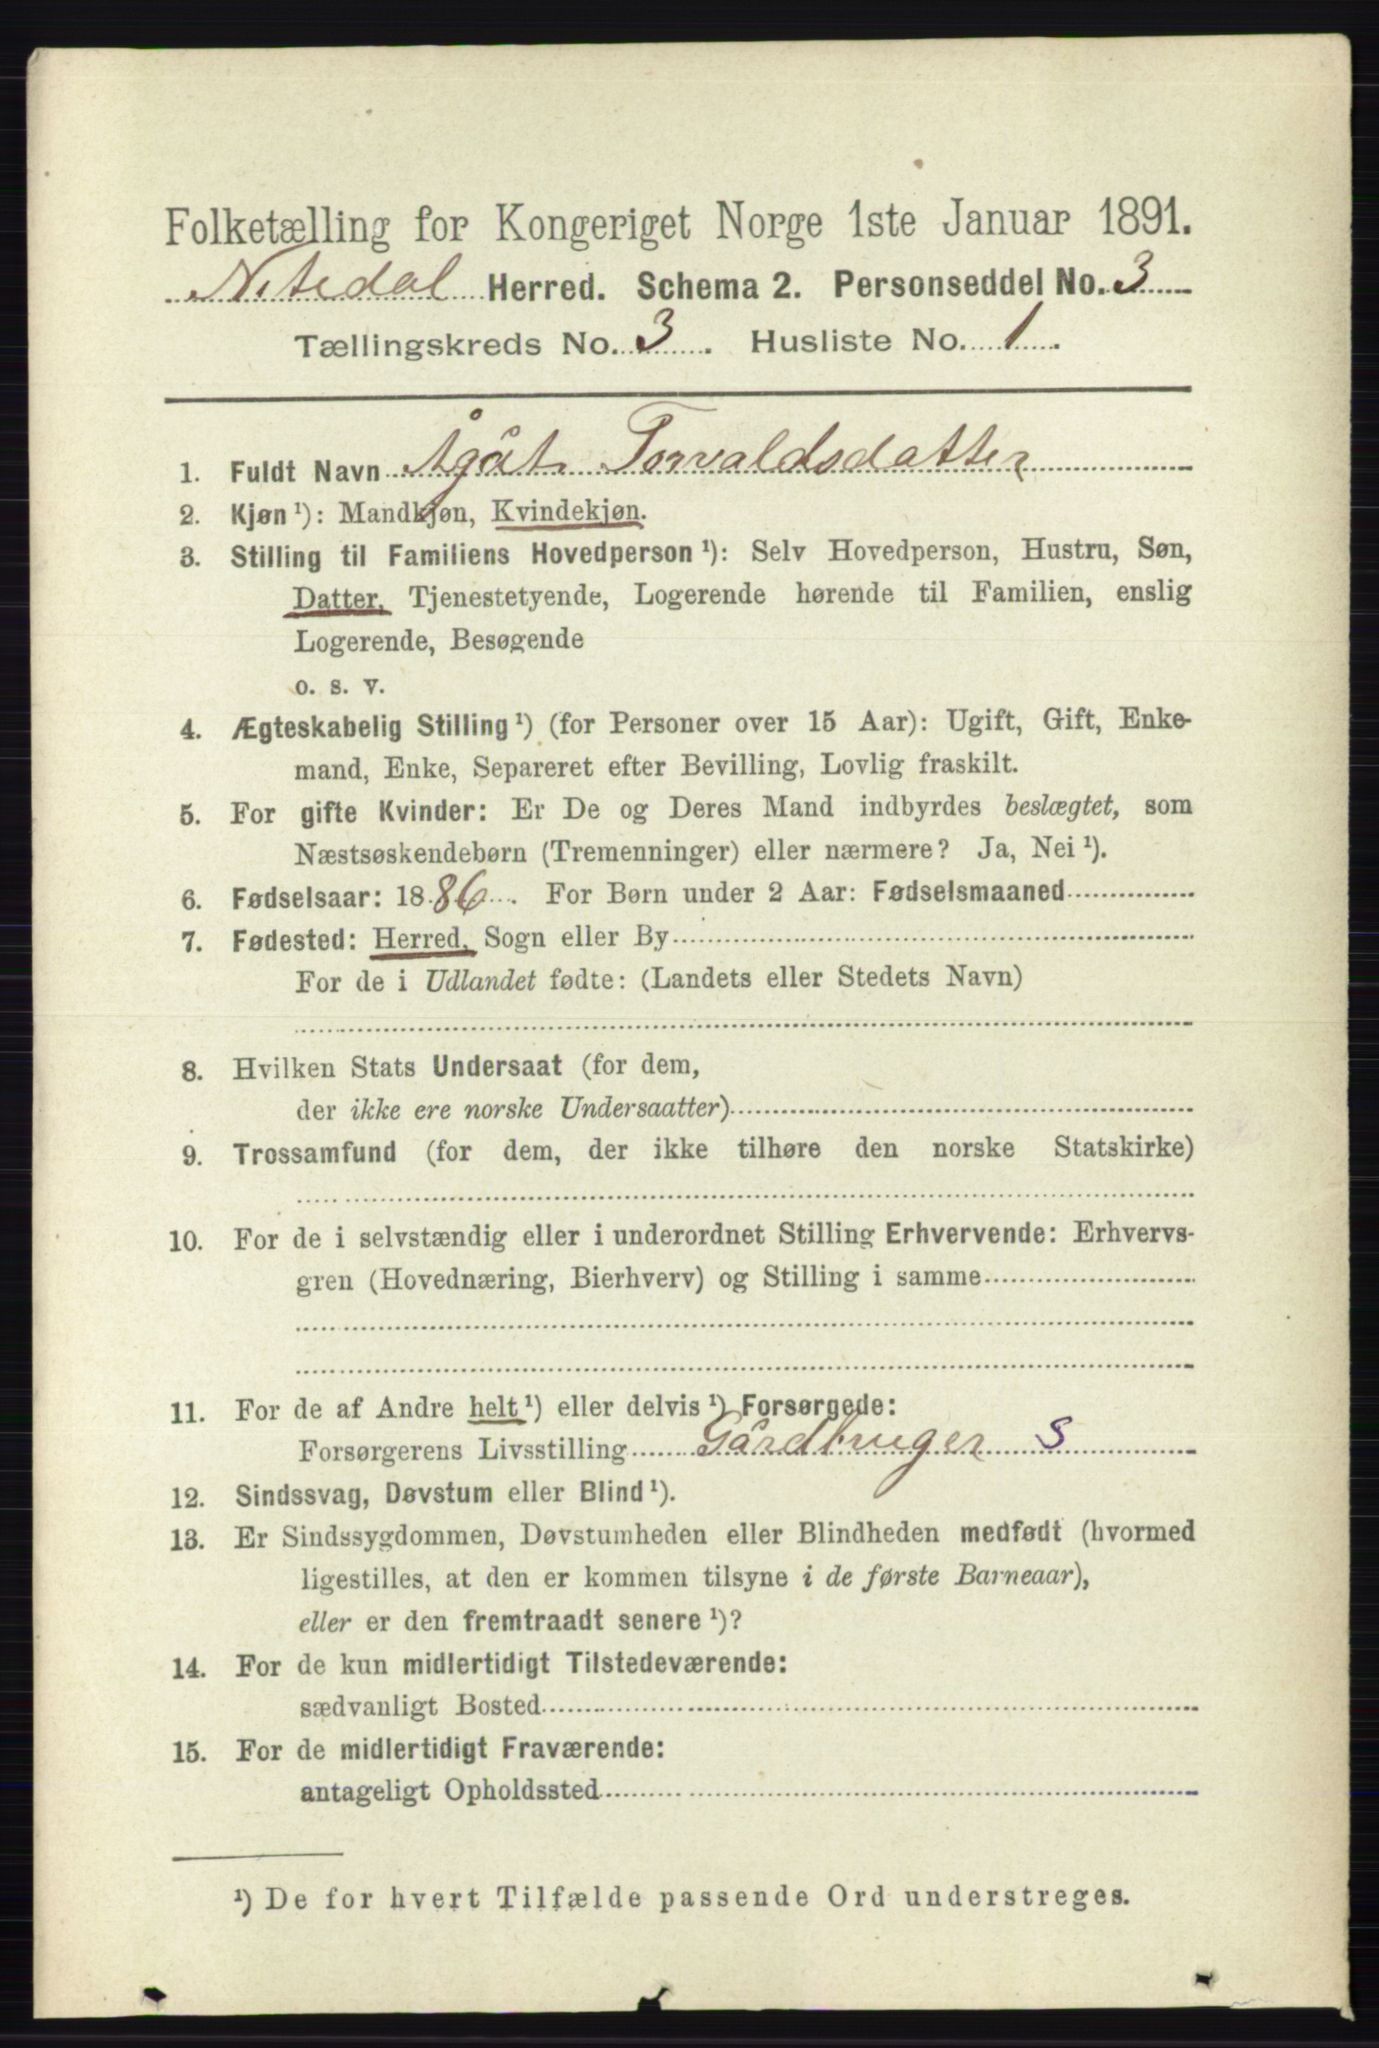 Folketælling for Kongeriget Norge 1ste Januar 1891.
Nitedal Herred. Schema 2. Personseddel No. 3
Tællingskreds No. 3. Husliste No. 1.
1. Fuldt Navn Ågåt Torvaldsdatter
2. Kjøn ¹): Mandkjøn, Kvindekjøn.
3. Stilling til Familiens Hovedperson ¹): Selv Hovedperson, Hustru, Søn,
Datter, Tjenestetyende, Logerende hørende til Familien, enslig
Logerende, Besøgende
o. s. v.
4. Ægteskabelig Stilling ¹) (for Personer over 15 Aar): Ugift, Gift, Enke-
mand, Enke, Separeret efter Bevilling, Lovlig fraskilt.
5. For gifte Kvinder: Er De og Deres Mand indbyrdes beslægtet, som
Næstsøskendebørn (Tremenninger) eller nærmere? Ja, Nei ¹).
6. Fødselsaar: 1886. For Børn under 2 Aar: Fødselsmaaned
7. Fødested: Herred, Sogn eller By
For de i Udlandet fødte: (Landets eller Stedets Navn)
8. Hvilken Stats Undersaat (for dem,
der ikke ere norske Undersaatter)
9. Trossamfund (for dem, der ikke tilhøre den norske Statskirke)
10. For de i selvstændig eller i underordnet Stilling Erhvervende: Erhvervs-
gren (Hovednæring, Bierhverv) og Stilling i samme
11. For de af Andre helt ¹) eller delvis ¹) Forsørgede:
Forsørgerens Livsstilling Gårdbruger S
12. Sindssvag, Døvstum eller Blind ¹).
13. Er Sindssygdommen, Døvstumheden eller Blindheden medfødt (hvormed
ligestilles, at den er kommen tilsyne i de første Barneaar),
eller er den fremtraadt senere ¹)?
14. For de kun midlertidigt Tilstedeværende:
sædvanligt Bosted
15. For de midlertidigt Fraværende:
antageligt Opholdssted
¹) De for hvert Tilfælde passende Ord understreges.